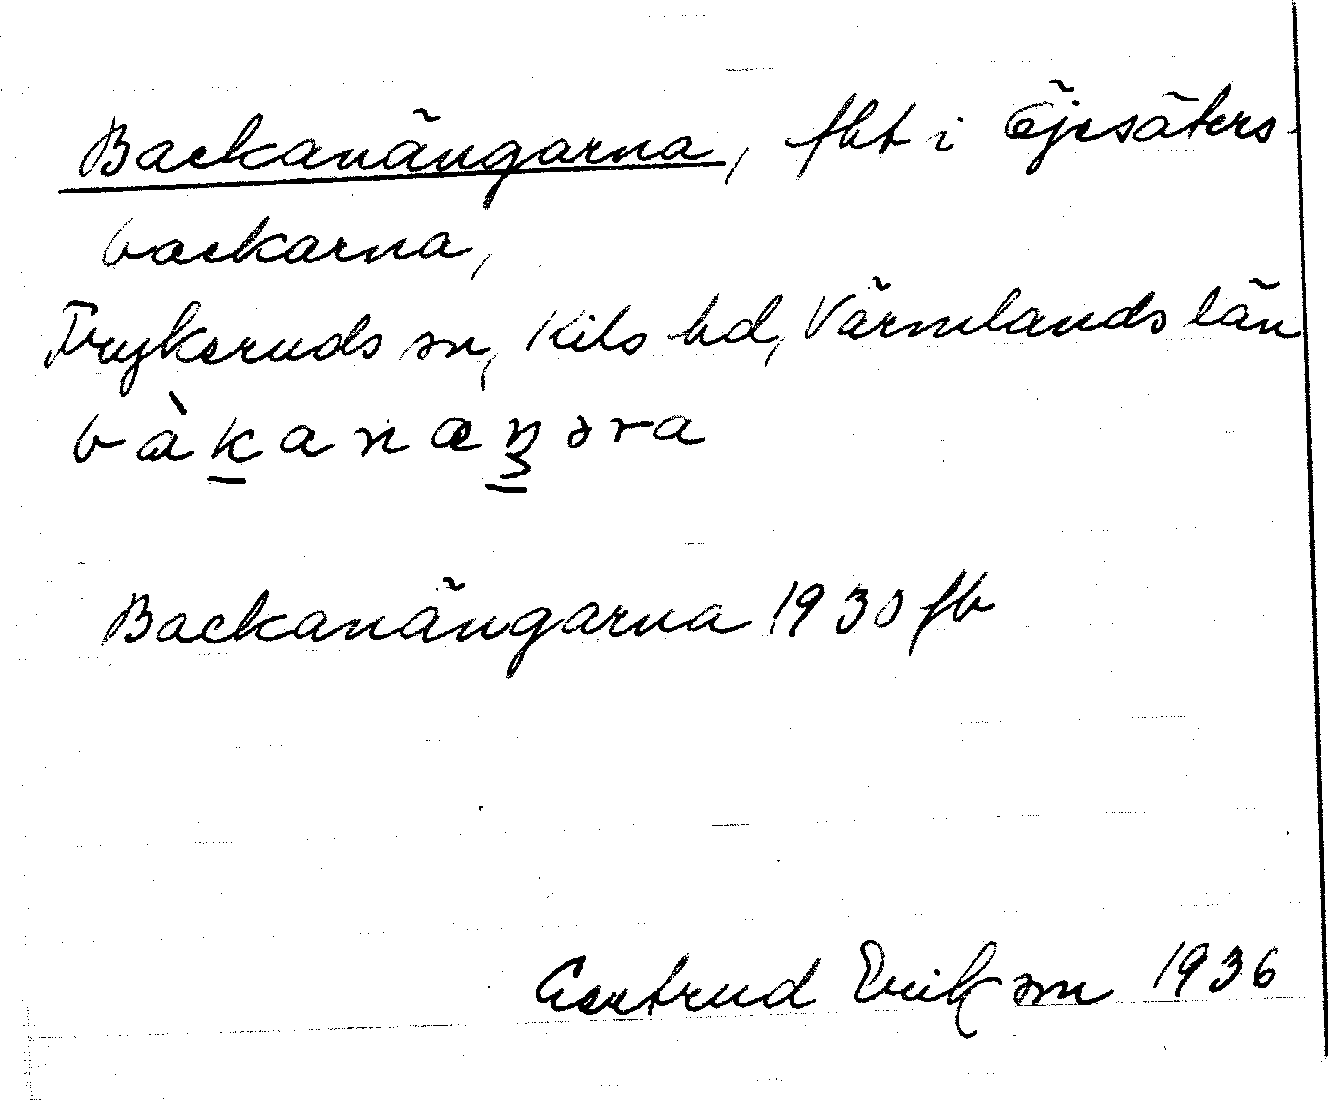 Backanängarna, fbt i Öjesäters-
backarna,
Frykeruds sn, Kils hd, Värmlands län
bàk̠anæŋ̠əra
Backanängarna 1930 fb
Gertrud Erikson 1936